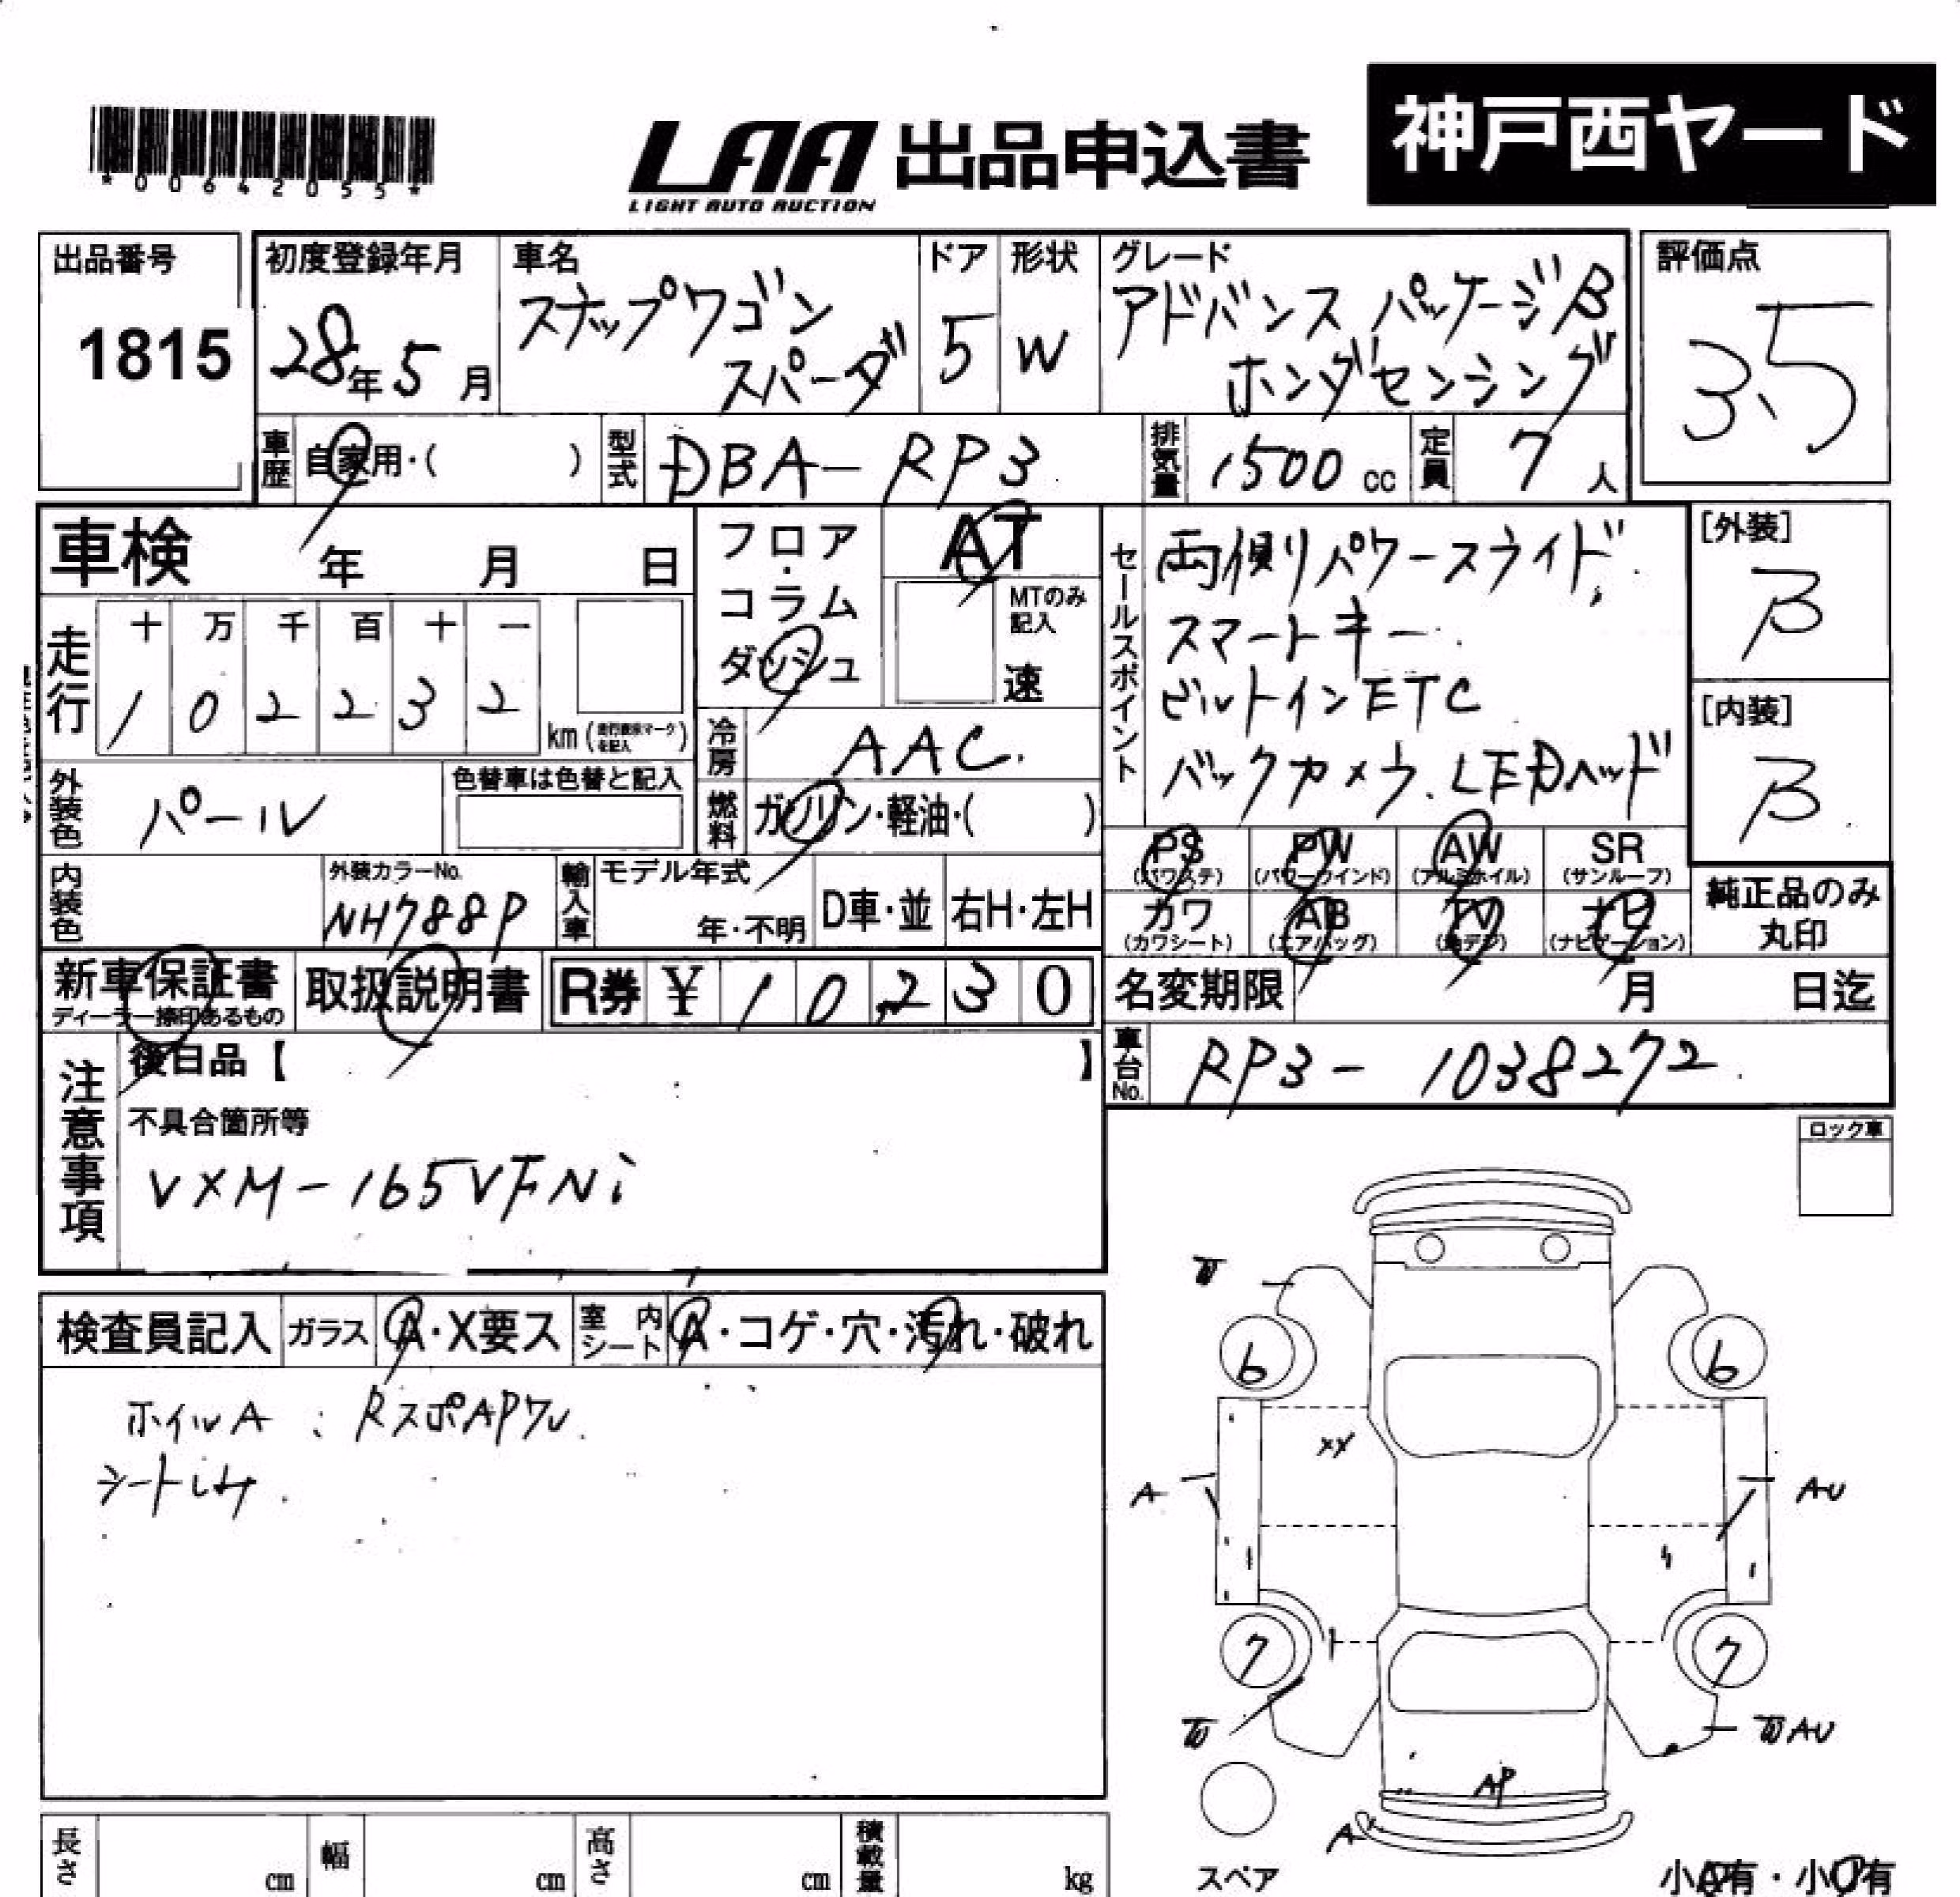 *00642055*
LAA 出品申込書
LIGHT AUTO AUCTION
神戸西ヤード
出品番号
1815
初度登録年月
28年5月
車名
スナップワゴン
スパーダ
ドア
5
形状
W
グレード
アドバンスパッケージβ
ホンダセンシング
評価点
3.5
車歴
自家用・( )
型式
DBA-RP3
排気量
1500cc
定員
7人
車検 年 月 日
走行
十 万 千 百 十 一
1 0 2 2 3 2
km (走行表示マークを記入)
フロア・
コラム
ダッシュ
AT
MTのみ
記入
速
冷房
AAC.
燃料
ガソリン・軽油・( )
セールスポイント
両側パワースライド、
スマートキー.
ビルトインETC
バックカメラ.LEDヘッド
[外装]
B
[内装]
B
外装色
パール
色替車は色替と記入
内装色
外装カラーNo.
NH788P
輸入車
モデル年式
年・不明
D車・並
右H・左H
PS
(パワステ)
PW
(パワーウインド)
AW
(アルミホイル)
SR
(サンルーフ)
カワ
(カワシート)
AB
(エアバッグ)
TV
(地デジ)
ナビ
(ナビゲーション)
純正品のみ
丸印
新車保証書
ディーラー捺印あるもの
取扱説明書
R券 ¥ 10,230
名変期限 月 日迄
車台No.
RP3-1038272
注意事項
後日品【 】
不具合箇所等
VXM-165VFNi
ロック車
検査員記入
ガラス
A・X要ス
室内シート
A・コゲ・穴・汚れ・破れ
ホイルA : RスポAPワレ.
W
6 6
XX
A
AU
7 7
W
W AU
AP
A
スペア
小A有・小U有
長さ cm
幅 cm
高さ cm
積載量 kg